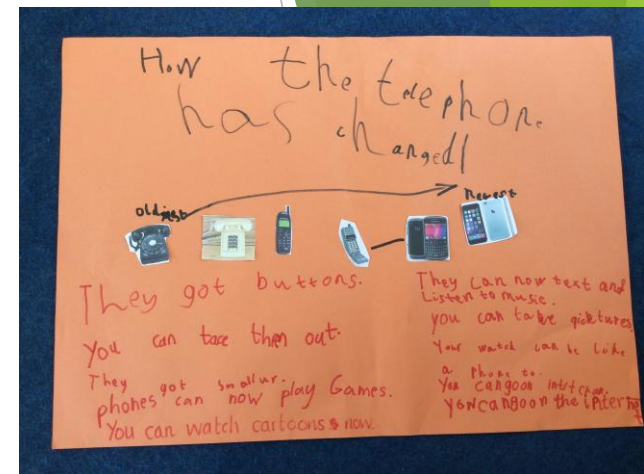 How the telephone
has changed!
oldiest
Recent
They got buttons.
You can take them out.
They got smallur.
phones can now play Games.
You can watch cartoons now.
They can now text and
Listen to music.
you can take picktures
Your watch can be like
a phone to.
You can go on
you can go on the internet